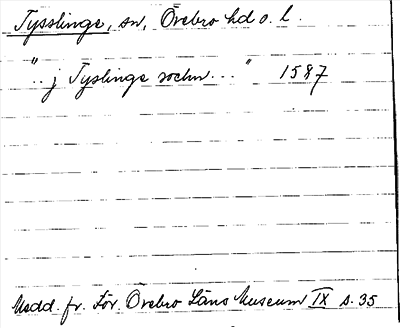 Tysslinge, sn, Örebro hd o. l.
".. j Tyslinge sochn..." 1587
Medd. fr. För. Örebro Läns Museum IX s. 35